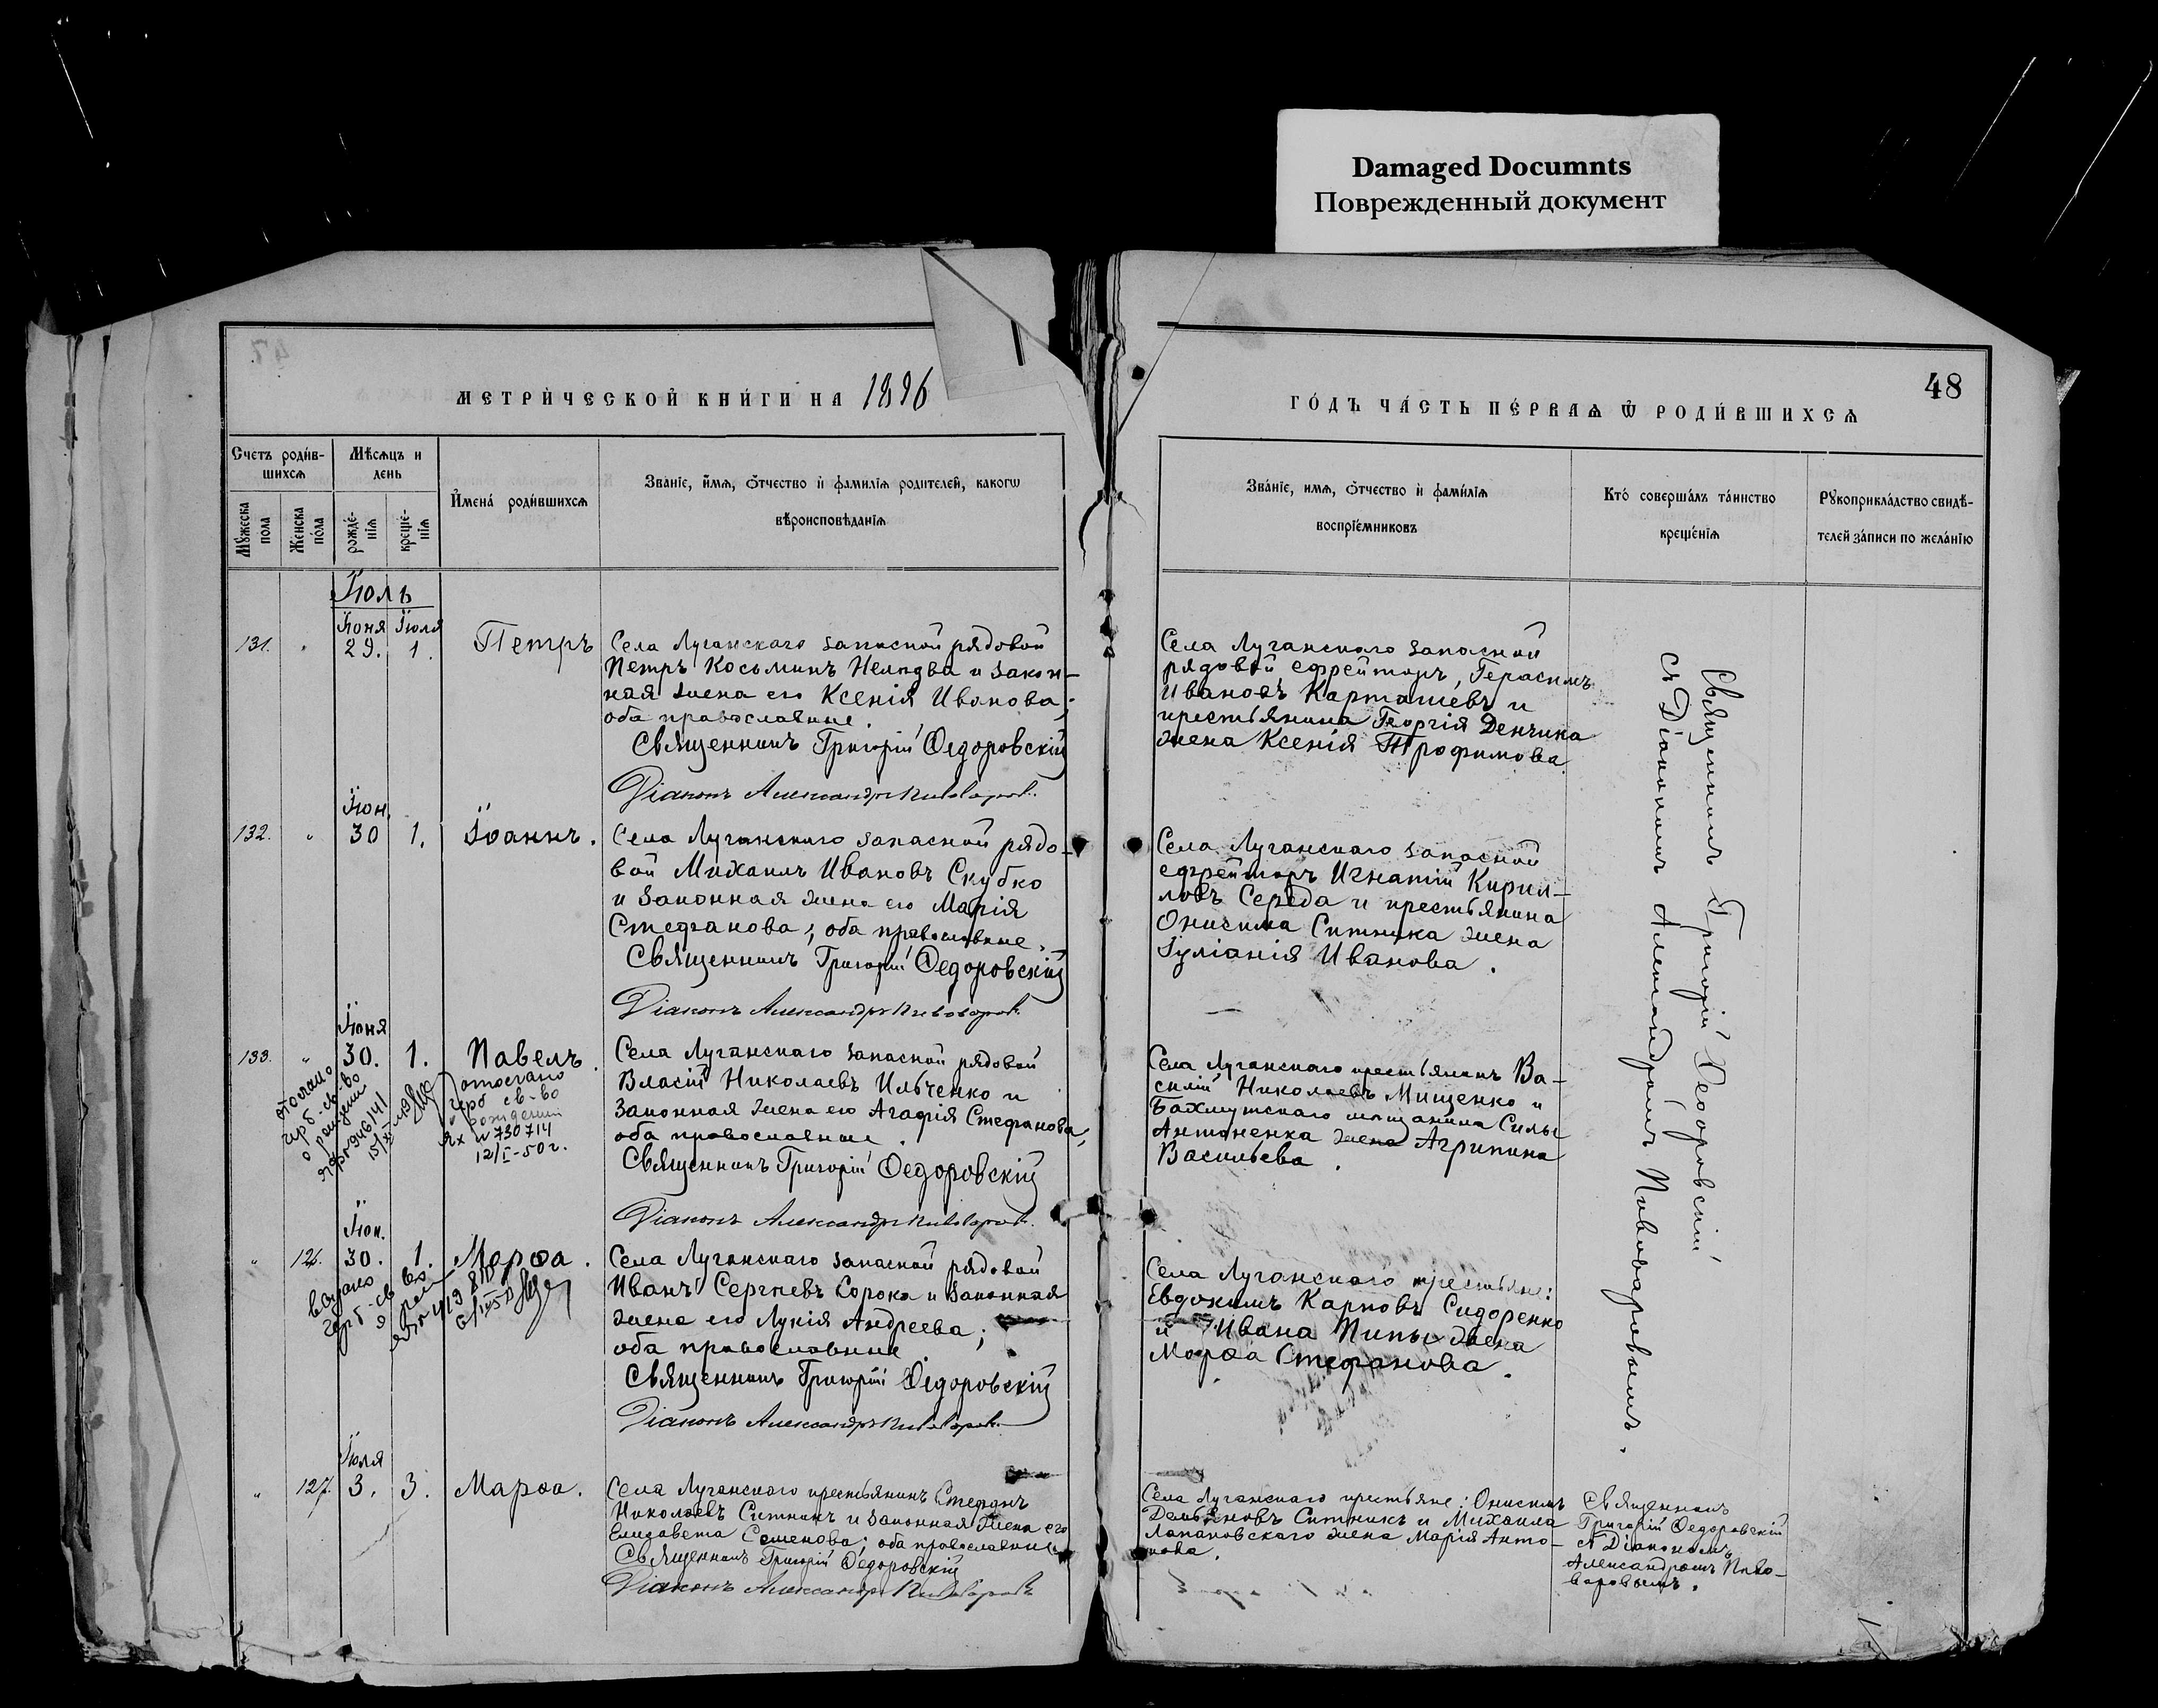 Damaged Documnts
Поврежденный документ
МЕТРИ́ЧЕСКОЙ КНИ́ГИ НА 1896
ГО́ДЪ ЧА́СТЬ ПЕ́РВАѦ Ѿ РОДИ́ВШИХСѦ
48
Счетъ роди́в-
шихсѧ
Мѣсѧцъ и
день
Мꙋжеска
пола
Женска
пола
рожде́-
нїѧ
креще-
нїѧ
И҆мена̀ роди́вшихсѧ
Зва́нїе, и҆мѧ, ѻ҆́тчество и҆ фами́лїѧ родителей, какогѡ
вѣроисповѣданїѧ
Зва́нїе, имѧ, ѻ҆́тчество и҆ фами́лїѧ
воспрїе́мниковъ
Кто̀ соверша́лъ та́инство
креще́нїѧ
Рꙋкоприкла́дство свидѣ-
телей за́писи по жела́нїю
Іюль
Іюня Іюля
131. " 29. 1. Петръ
Села Луганскаго запасной рядовой
Петръ Косьминъ и закон-
ная жена его Ксенія Иванова;
оба православные.
Священникъ Григорій Ѳедоровскій
Діаконъ Александръ Пивоваровъ
Села Луганскаго запасной
рядовой ефрейторъ, Герасимъ
Ивановъ Карташевъ и
крестьянина Георгія Денчика
жена Ксенія Трофимова.
Іюн.
132. " 30 1. Іоаннъ.
Села Луганскаго запасной рядо-
вой Михаилъ Ивановъ Скубко
и законная жена его Марія
Стефанова; оба православные.
Священникъ Григорій Ѳедоровскій
Діаконъ Александръ Пивоваровъ
Села Луганскаго запасной
ефрейторъ Игнатій Кирил-
ловъ Середа и крестьянина
Онисима Ситника жена
Іуліанія Иванова.
Іюня
133. " 30. 1. Павелъ.
отослано
герб-св-во
о рожден
отослано
герб св-во
о рождении
ЯХ № 730714
12/I-50 г.
Села Луганскаго запасной рядовой
Власій Николаевъ Ильченко и
законная жена его Агафія Стефанова,
оба православные.
Священникъ Григорій Ѳедоровскій
Діаконъ Александръ Пивоваровъ
Села Луганскаго крестьянинъ Ва-
силій Николаевъ Мищенко и
Бахмутскаго мѣщанина Силы
Антоненка жена Агрипина
Васильева.
Іюн.
" 126. 30. 1. Марѳа.
выдано
герб-св во
Села Луганскаго запасной рядовой
Иванъ Сергѣевъ Сорока и законная
жена его Лукія Андреева;
оба православные
Священникъ Григорій Ѳедоровскій
Діаконъ Александръ Пивоваровъ
Села Луганскаго крестьяне:
Евдокимъ Карповъ Сидоренко
и Ивана Пипы жена
Марѳа Стефанова.
Священникъ Григорій Ѳеодоровскій
съ Діакономъ Александромъ Пивоваровымъ.
Іюля
" 127. 3. 3. Марѳа.
Села Луганскаго крестьянинъ Стефанъ
Николаевъ Ситникъ и законная жена его
Елисавета Семенова; оба православные
Священникъ Григорій Ѳедоровскій
Діаконъ Александръ Пивоваровъ
Села Луганскаго крестьяне: Онисимъ
Демьяновъ Ситникъ и Михаила
Лапановскаго жена Марія Анто-
нова.
Священникъ
Григорій Ѳедоровскій
съ Діакономъ
Александромъ Пиво-
варовымъ.